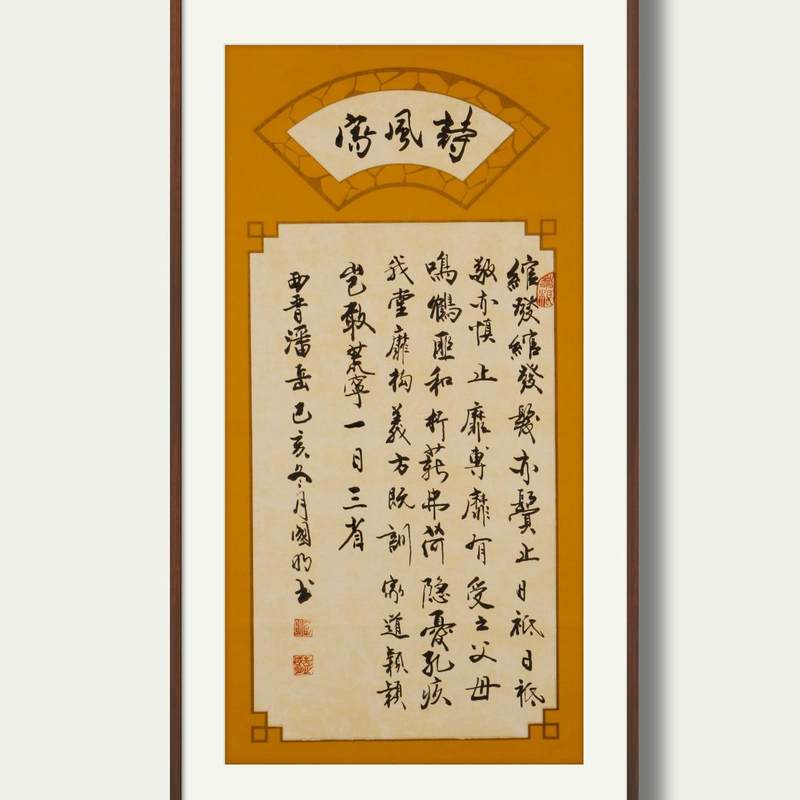 家風詩
綰發綰發髮亦鬢止日祗日祗
敬亦慎止靡專靡有受之父母
鳴鶴匪和析薪弗荷隐憂孔疚
我堂靡构義方既訓家道穎穎
豈敢荒寧一日三省
西晋潘岳己亥冬月國明书